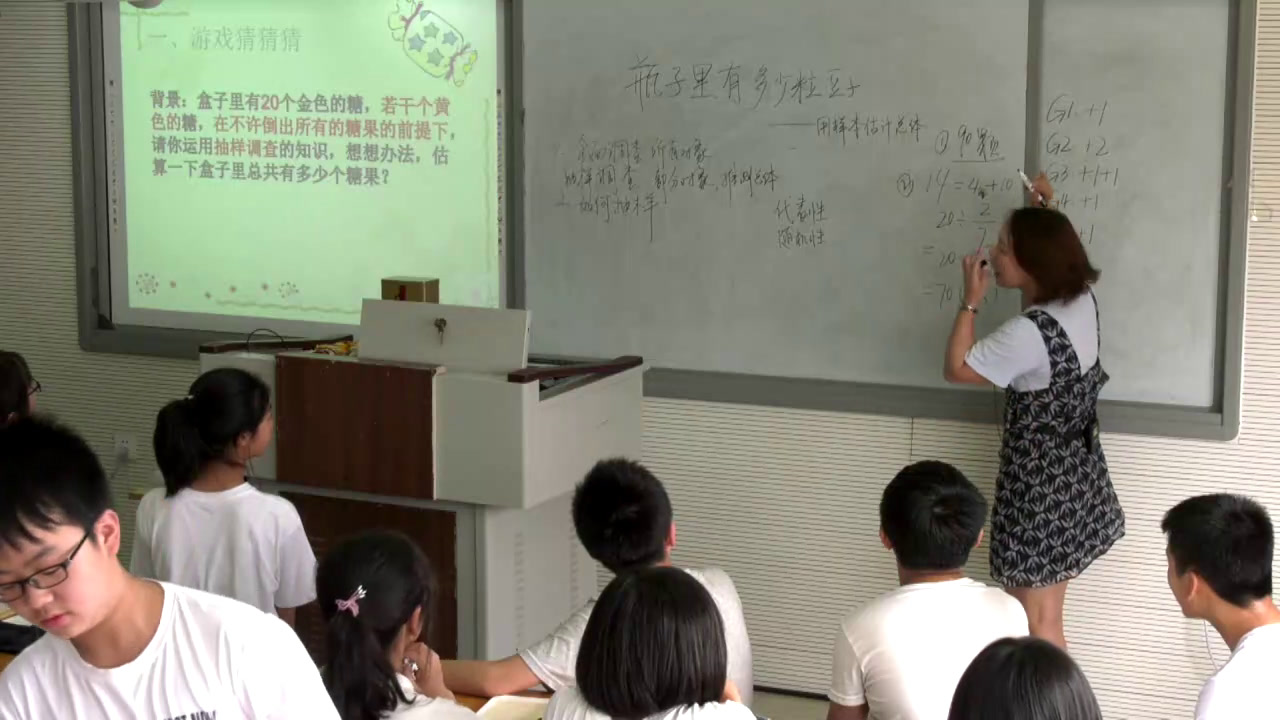 一、游戏猜猜猜
背景：盒子里有20个金色的糖，若干个黄
色的糖，在不许倒出所有的糖果的前提下，
请你运用抽样调查的知识，想想办法，估
算一下盒子里总共有多少个糖果？
瓶子里有多少粒豆子
——用样本估计总体
全面调查 所有对象
抽样调查 部分对象，推测总体
二、如何抽样
代表性
随机性
① 90颗
② 14=4+10
20÷2/7
=20
=70
G1 +1
G2 +2
G3 +1+1
G4 +1
+1